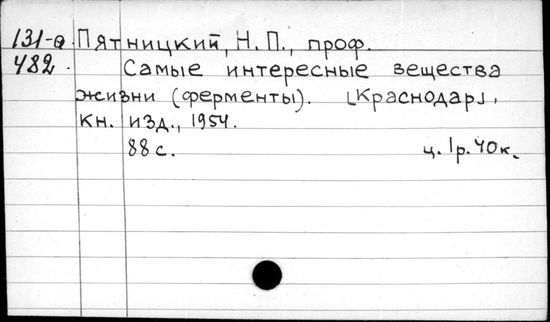 131-а Пятницкий, Н. П., проф.
482. Самые интересные вещества
жизни (ферменты). [Краснодар],
Кн. изд., 1954.
88 с. ц. 1р. 40к.